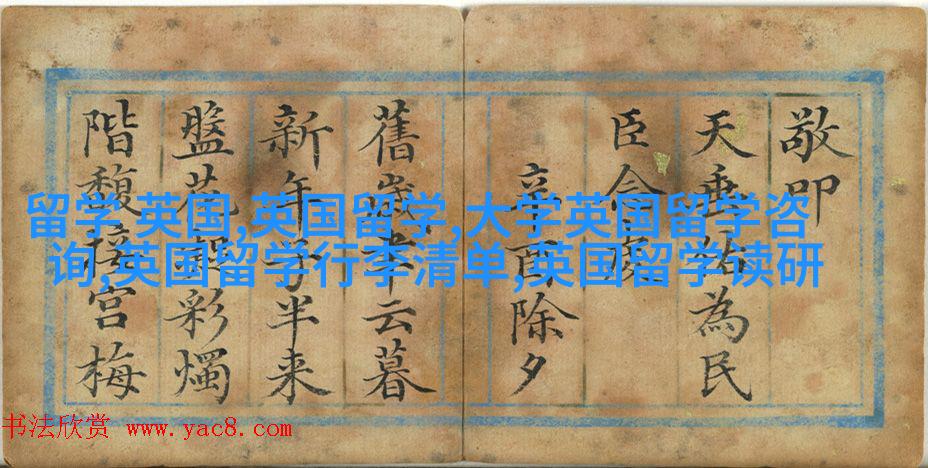 敬叩
天垂祐為民
臣
辛酉除夕
舊歲云暮
新年半来
盤花起彩燭
階馥接宮梅
留学,英国,英国留学,大学英国留学咨
询,英国留学行李清单,英国留学读研
书法欣赏 www.yac8.com